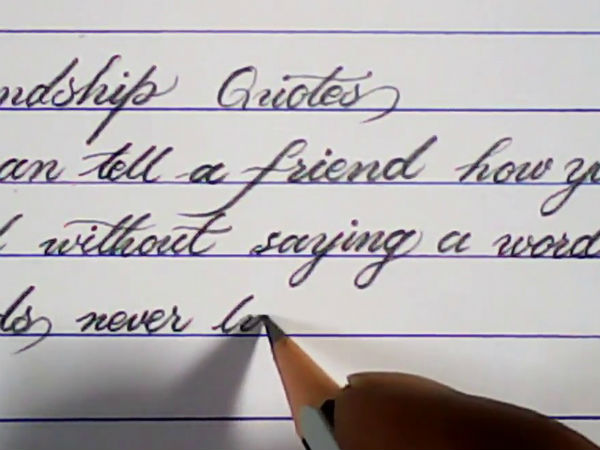 ndship Quotes
an tell a friend how yo
l without saying a word
ds never lo